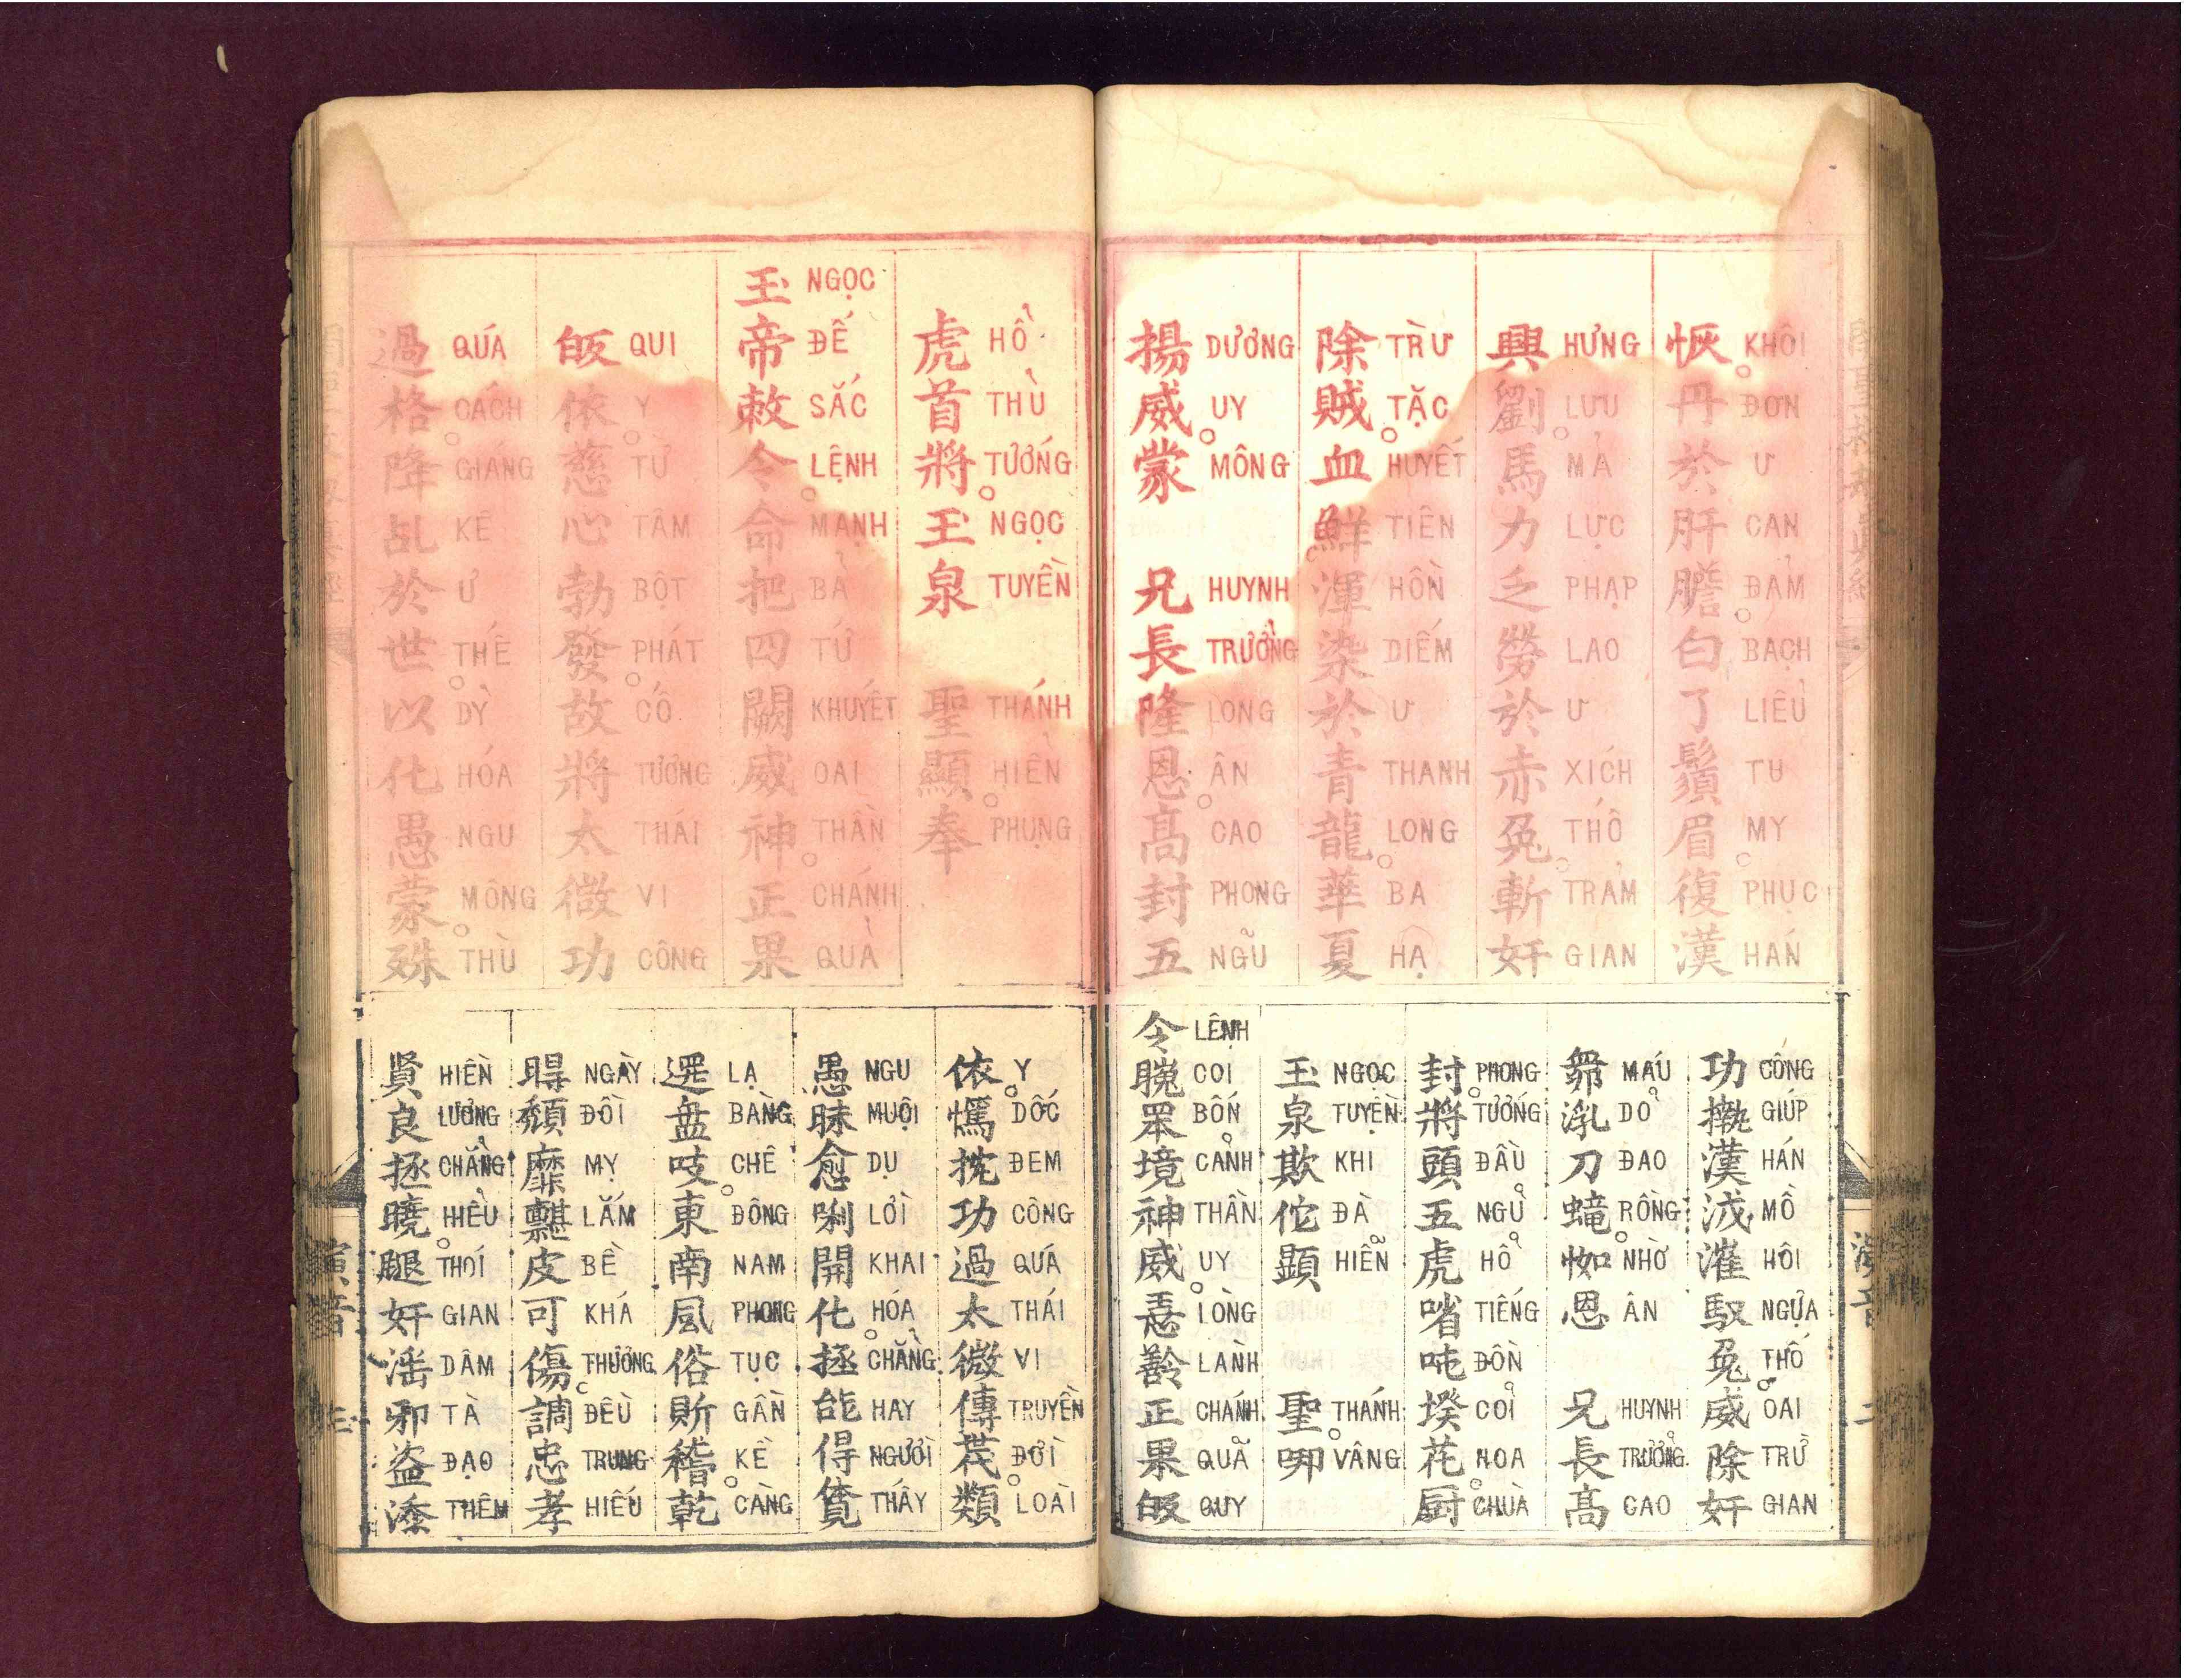 恢 KHÔI 丹 ĐƠN 於 Ư 肝 CAN 膽 ĐẢM 白 BẠCH 了 LIÊU 鬚 TU 眉 MY 復 PHỤC 漢 HÁN
興 HƯNG 劉 LƯU 馬 MẢ 力 LỰC 乏 PHẠP 勞 LAO 於 Ư 赤 XÍCH 兔 THỐ 斬 TRẢM 奸 GIAN
除 TRỪ 賊 TẶC 血 HUYẾT 鮮 TIÊN 渾 HỒN 染 DIẾM 於 Ư 青 THANH 龍 LONG 華 BA 夏 HẠ
揚 DƯƠNG 威 UY 蒙 MÔNG 兄 HUYNH 長 TRƯỞNG 隆 LONG 恩 ÂN 高 CAO 封 PHONG 五 NGŨ
功 CÔNG GIÚP 漢 HÁN MỒ 灌 HÔI 馭 NGỰA 兔 THỐ 威 OAI 除 TRỪ 奸 GIAN
MÁU DO 刀 ĐAO RỒNG NHỜ 恩 ÂN 兄 HUYNH 長 TRƯỞNG 高 CAO
封 PHONG 將 TƯỚNG 頭 ĐẦU 五 NGŨ 虎 HỔ TIẾNG 吨 ĐỒN CÕI 花 HOA 厨 CHÙA
玉 NGỌC 泉 TUYỀN 欺 KHI 佗 ĐÀ 顕 HIỂN 聖 THÁNH VÂNG
令 LỆNH COI BỐN 境 CẢNH 神 THẦN 威 UY LÒNG LÀNH 正 CHÁNH 果 QUẢ 皈 QUY
虎 HỔ 首 THỦ 將 TƯỚNG 玉 NGỌC 泉 TUYỀN 聖 THÁNH 顯 HIỂN 奉 PHỤNG
玉 NGỌC 帝 ĐẾ 敕 SẮC 令 LỆNH 命 MẠNH 把 BẢ 四 TỨ 闕 KHUYẾT 威 OAI 神 THẦN 正 CHÁNH 果 QUẢ
皈 QUI 依 Y 慈 TỪ 心 TÂM 勃 BỘT 發 PHÁT 故 CỐ 將 TƯƠNG 太 THÁI 微 VI 功 CÔNG
過 QÚA 格 CÁCH 降 GIÁNG 乩 KÊ 於 Ư 世 THẾ 以 DỶ 化 HÓA 愚 NGU 蒙 MÔNG 殊 THÙ
依 Y DỐC ĐEM 功 CÔNG 過 QÚA 太 THÁI 微 VI 傳 TRUYỀN ĐỜI 類 LOÀI
愚 NGU 昧 MUỘI 愈 DỤ 唎 LỜI 開 KHAI 化 HÓA 拯 CHẲNG HAY NGƯỜI THẤY
LẠ 盆 BẰNG 吱 CHÊ 東 ĐÔNG 南 NAM 風 PHONG 俗 TỤC GẦN 稽 KỀ 乾 CÀNG
NGÀY 頹 ĐỒI 靡 MỴ LẮM 皮 BỀ 可 KHÁ 傷 THƯƠNG 調 ĐỀU 忠 TRUNG 孝 HIẾU
賢 HIỀN 良 LƯƠNG 拯 CHẲNG 曉 HIỂU 腿 THÓI 奸 GIAN 滛 DÂM 邪 TÀ 盗 ĐẠO 添 THÊM
演音